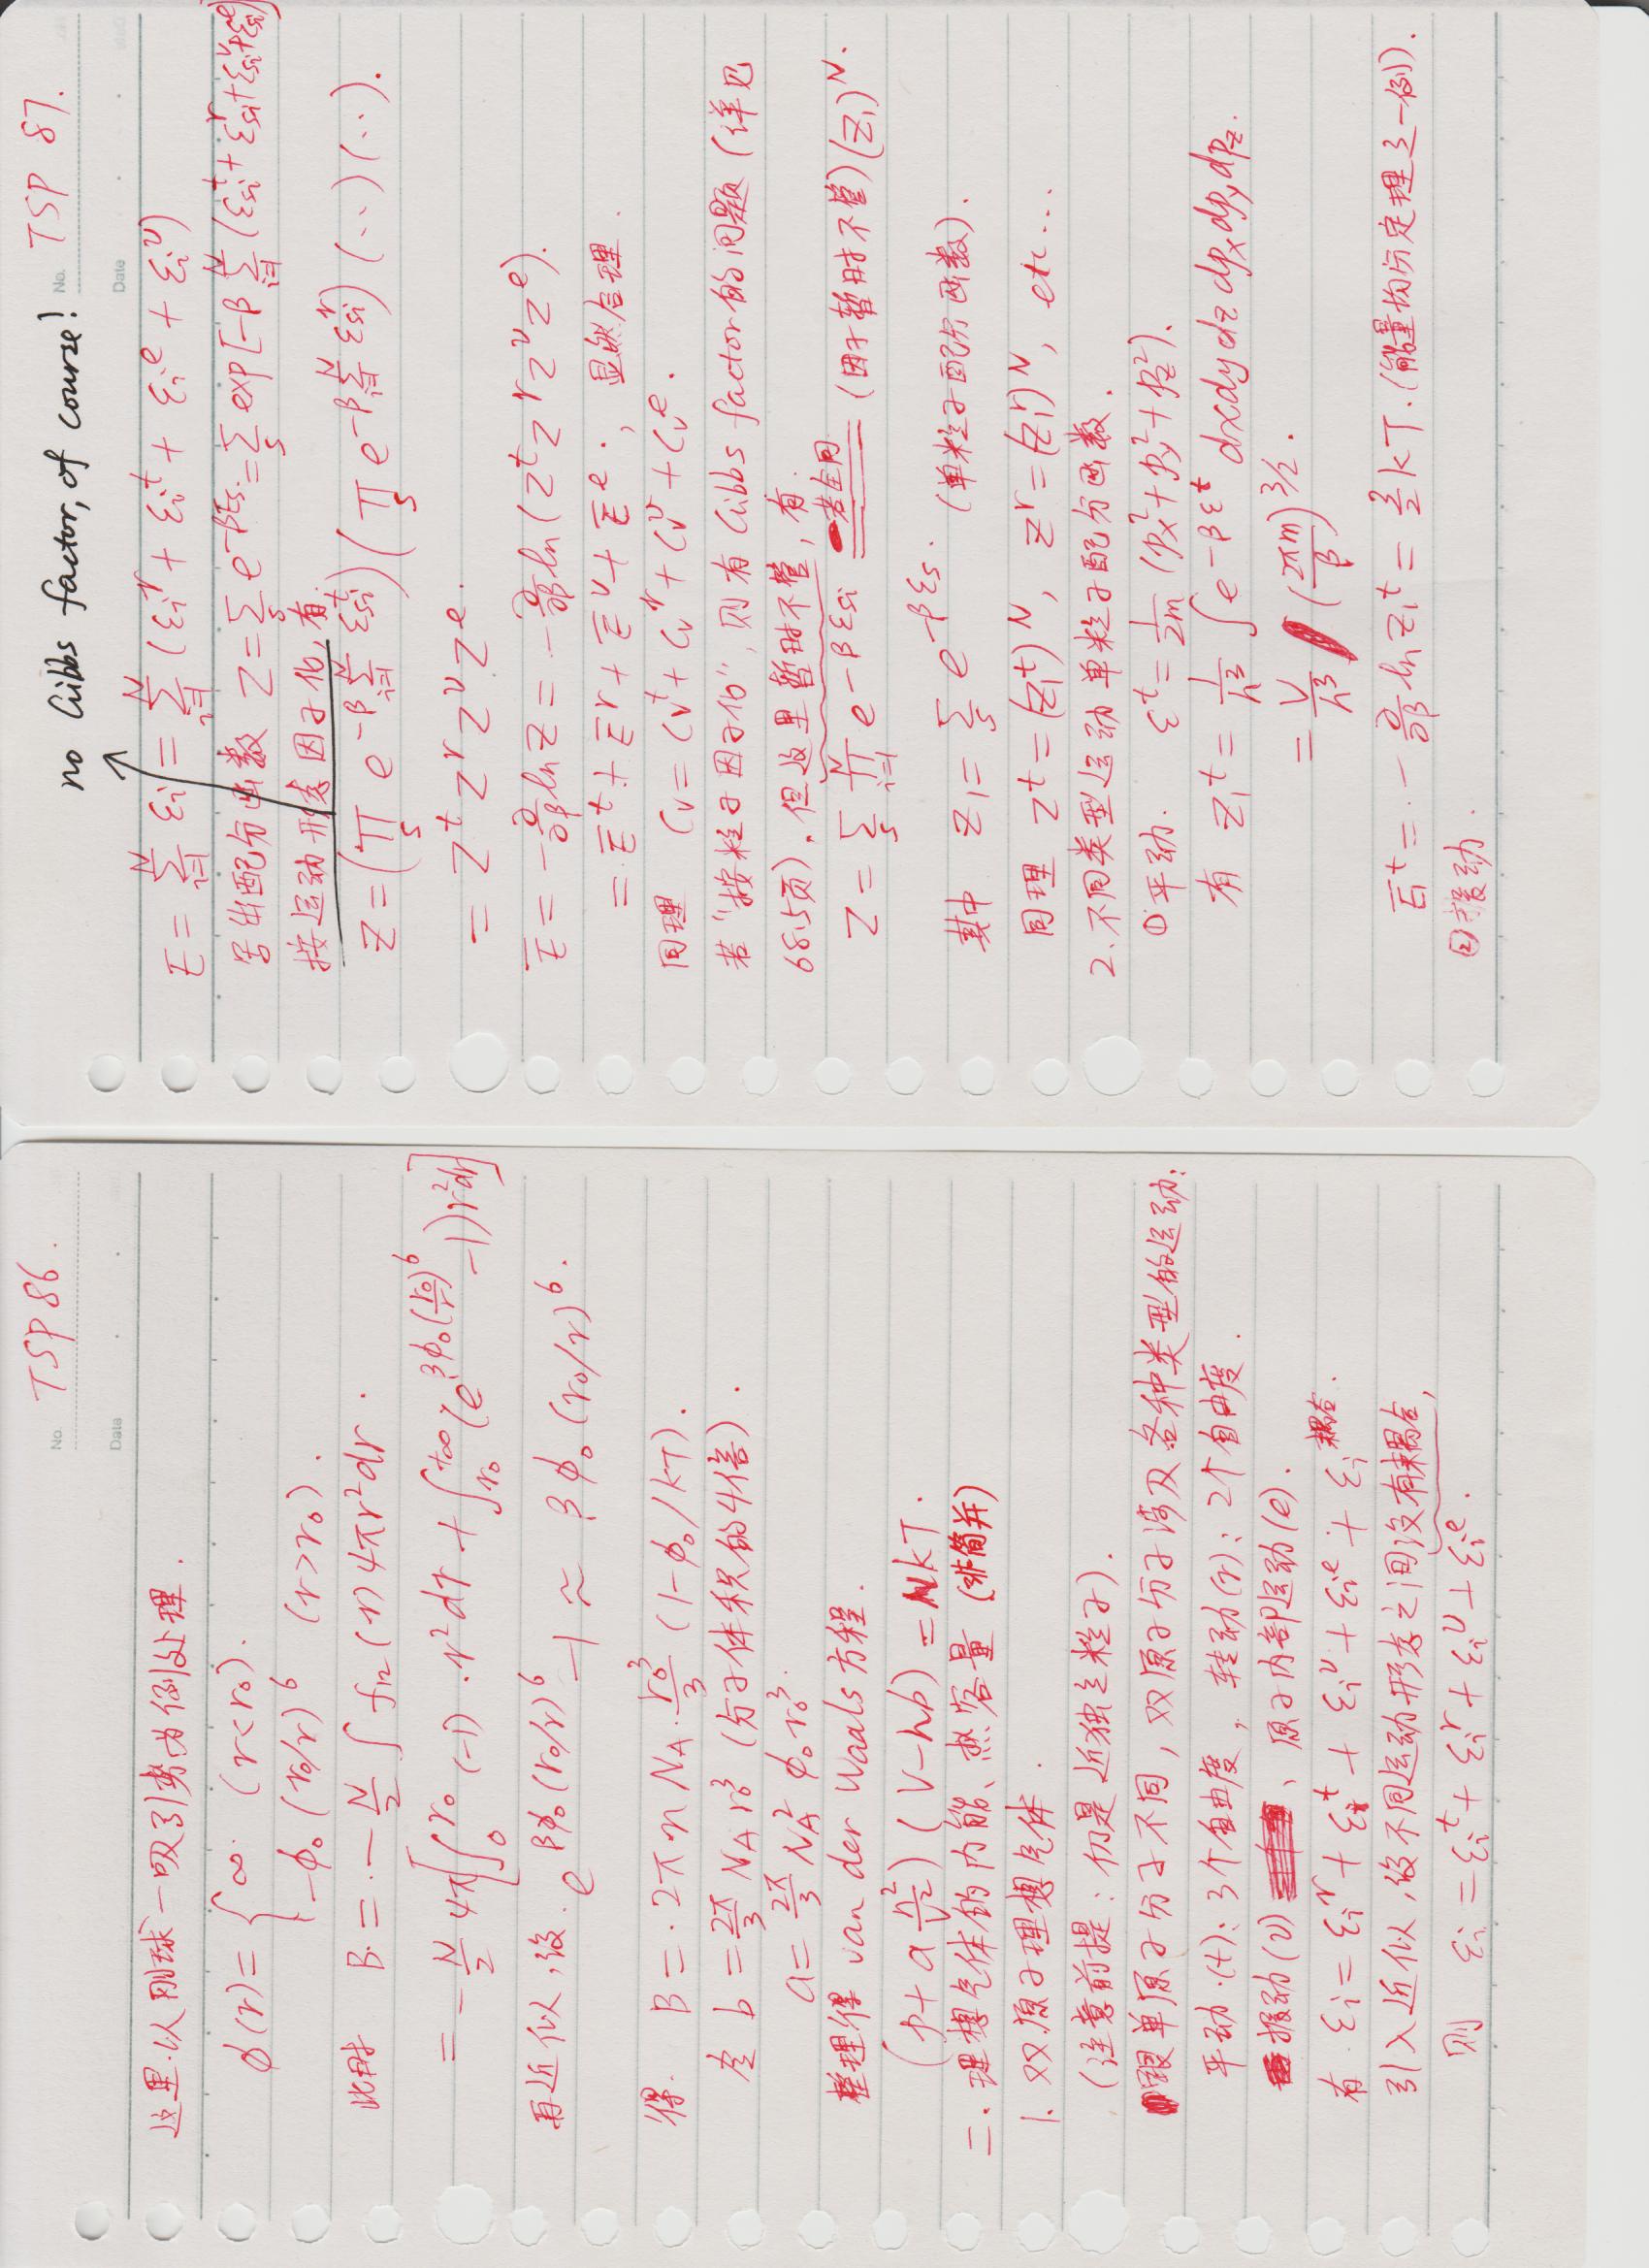 No. TSP 86.
Date
这里以刚球-吸引势为例处理.
ϕ(r) = { ∞ (r<r₀).
-ϕ₀ (r₀/r)⁶ (r>r₀).
此时 B = - N/2 ∫ f₁₂(r) 4πr²dr.
= - N/2 4π[∫₀^r₀ (-1)·r²dr + ∫_r₀^+∞ (e^βϕ₀(r₀/r)⁶ -1)r²dr]
再近似,设 e^βϕ₀(r₀/r)⁶ -1 ≈ βϕ₀(r₀/r)⁶.
得 B = 2πn N_A · r₀³/3 (1-ϕ₀/kT).
令 b = 2π/3 N_A r₀³ (分子体积的4倍).
a = 2π/3 N_A² ϕ₀ r₀³.
整理得 van der Waals 方程.
(p + a n²/V²)(V-nb) = NkT.
二. 理想气体的内能、热容量 (非简并)
1. 双原子理想气体.
(注意前提: 仍是近独立粒子).
跟单原子分子不同, 双原子分子涉及各种类型的运动:
平动(t): 3个自由度, 转动(r): 2个自由度.
振动(v)、原子内部运动(e).
有 εi = εi^r + εi^t + εi^v + εi^e + εi^耦合.
引入近似,设不同运动形态之间没有耦合,
则 εi = εi^t + εi^r + εi^v + εi^e.
No. TSP 87.
Date
no Gibbs factor, of course!
E = Σ_{i=1}^N εi = Σ_{i=1}^N (εi^r + εi^t + εi^e + εi^v)
写出配分函数 Z = Σ_s e^-βEs = Σ_s exp[-β Σ_{i=1}^N (εsi^t + εsi^r + εsi^v + εsi^e)]
按运动形态因子化, 有.
Z = (∏_s e^-βΣ_{i=1}^N εsi^t)(∏_s e^-βΣ_{i=1}^N εsi^r)(··)(··).
= Z^t Z^r Z^v Z^e.
Ē = -∂/∂β ln Z = -∂/∂β ln(Z^t Z^r Z^v Z^e).
= Ē^t + Ē^r + Ē^v + Ē^e, 显然合理.
同理 Cv = Cv^t + Cv^r + Cv^v + Cv^e.
若"按粒子因子化", 则有 Gibbs factor 的问题 (详见
68.5页). 但这里暂时不管, 有.
Z = Σ_s ∏_{i=1}^N e^-βεsi =若全同= (因子暂时不管)(Z₁)^N.
其中 Z₁ = Σ_s e^-βεs. (单粒子配分函数).
同理 Z^t = (Z₁^t)^N, Z^r = (Z₁^r)^N, etc...
2. 不同类型运动单粒子配分函数.
① 平动. ε^t = 1/2m (px² + py² + pz²).
有 Z₁^t = 1/h³ ∫ e^-βε^t dxdydz dpx dpy dpz.
= V/h³ (2πm/β)^3/2.
Ē₁^t = -∂/∂β ln Z₁^t = 3/2 kT. (能量均分定理之一例).
② 振动.